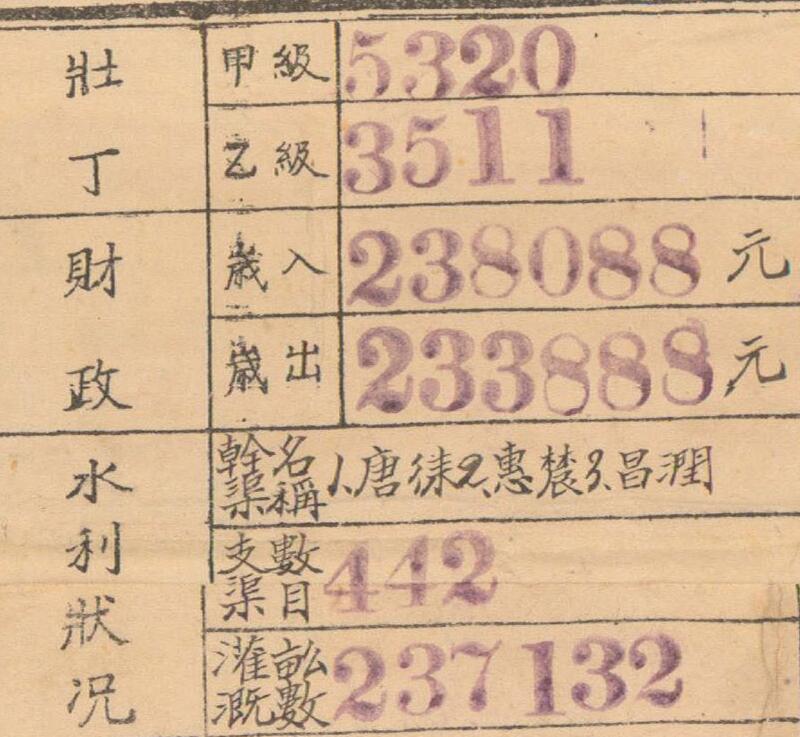 壯丁 甲級 5320
乙級 3511
財政 歲入 238088元
歲出 233888元
水利狀况 幹渠名稱 1、唐徕2、惠農3、昌潤
支渠數目 442
灌溉畝數 237132